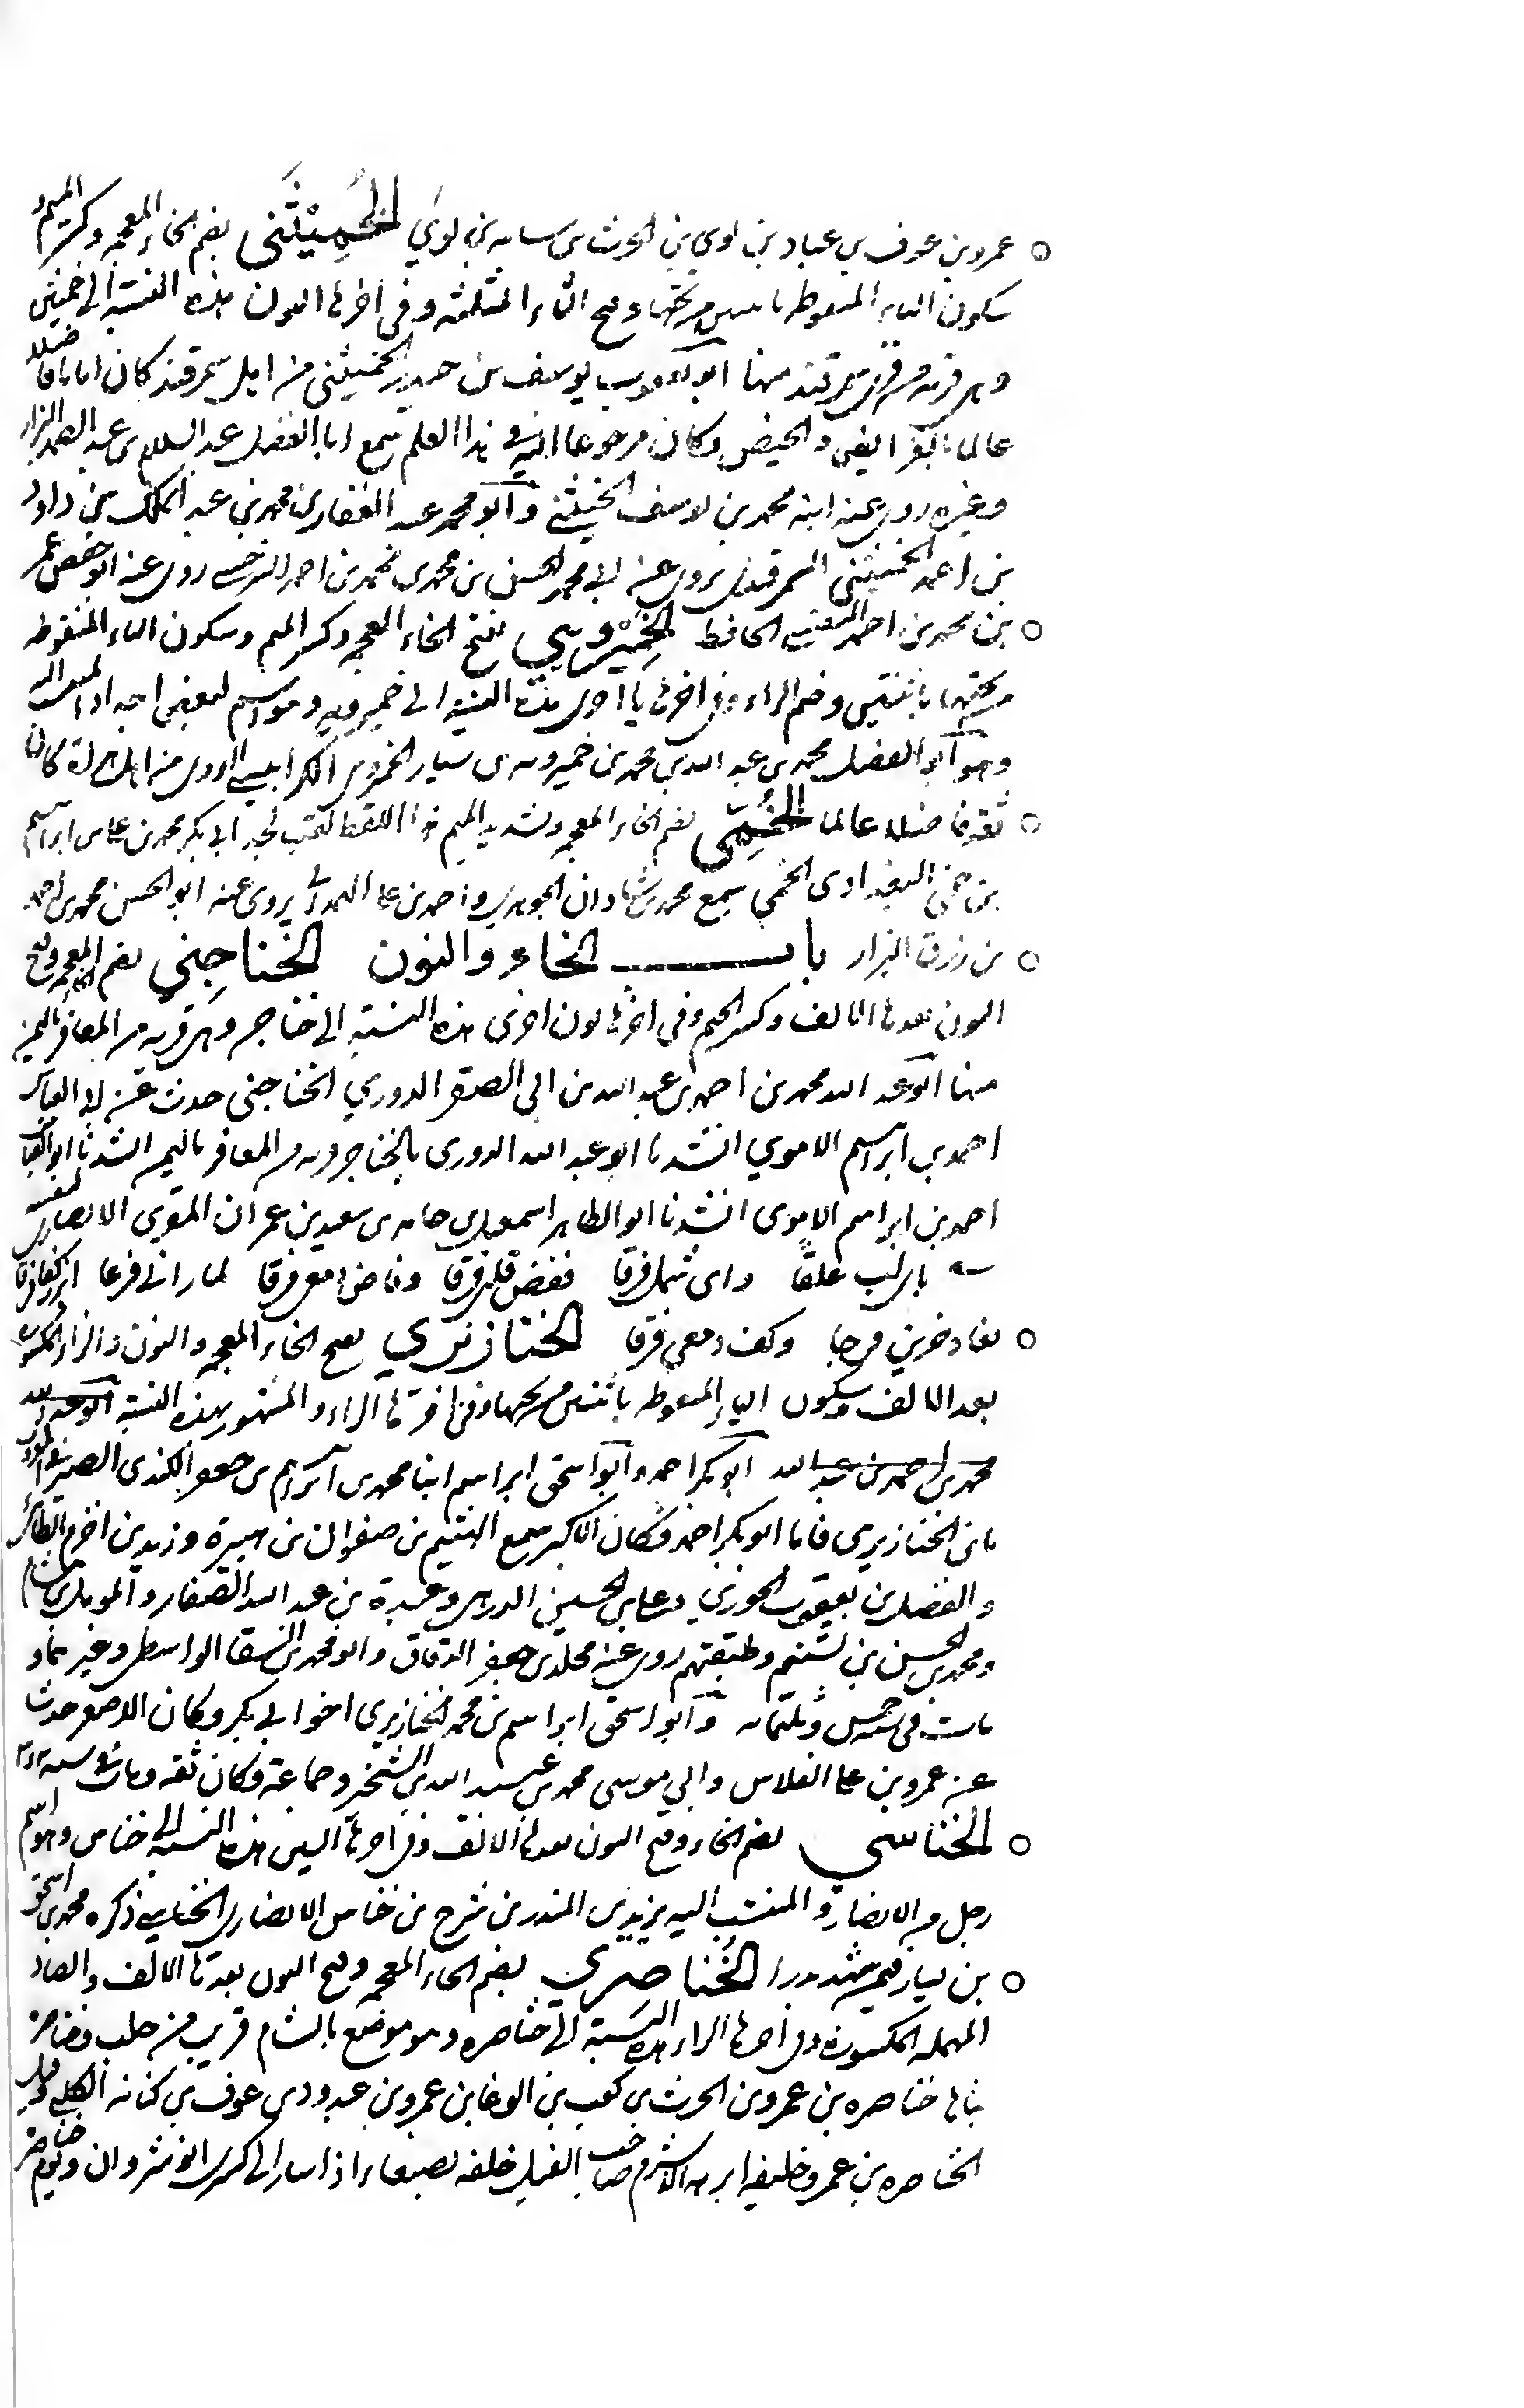 عمرو بن عوف بن عباد بن لوي بن الحرث بن سامه بن لوي الخُمِيْثَني بضم الخاء المعجمه وكسر الميم و
سكون الياء المنقوطه باثنين من تحتها وفتح الثاء المثلثه وفي اخرها النون هذه النسبة الى خميثن
وهي قريه من قرى سمرقند منها ابو يعقوب يوسف بن حيدر الخميثني من اهل سمرقند كان اماما فاضلا
عالما بالفرايض والحيض وكان مرجوعا اليه في هذا العلم سمع ابا الفضل عبد السلام بن عبد الصمد البزاز
وغيره روى عنه ابنه محمد بن يوسف الخميثني وابو محمد عبد الغفار بن محمد بن عبد الملك بن داود
بن احمد الخميثني السمرقندي يروي عن ابي محمد الحسن بن محمد بن محمد بن احمد السرخسي روى عنه ابو حفص عمر
بن محمد بن احمد النسفي الحافظ الخَمِيْرويي بفتح الخاء المعجمه وكسر الميم وسكون الياء المنقوطه
من تحتها باثنتين وضم الراء وفي اخرها يا اخرى هذه النسبة الى خميرويه وهو اسم لبعض اجداد المنتسب اليه
وهو ابو الفضل محمد بن عبد الله بن محمد بن خميرويه بن سيار الخميروي الكرابيسي الهروي من اهل هراة كان
ثقه فاضلا عالما الخُمّي بضم الخاء المعجمه وتشديد الميم هذا اللفظ لقب لجد ابي بكر محمد بن علي بن ابراهيم
بن خمي البغدادي الخمي سمع محمد بن شاذان الجوهري واحمد بن علي يروي عنه ابو الحسن محمد بن احمد
بن رزق البزاز باب الخاء والنون الخناجِني بضم الخاء المعجمه وفتح
النون بعدها الالف وكسر الجيم وفي اخرها نون اخرى هذه النسبة الى خناجن وهي قريه من المعافر باليمن
منها ابو عبد الله محمد بن احمد بن عبد الله بن ابي الصقر الدوري الخناجني حدث عن ابي العباس
احمد بن ابراهيم الاموي انشدنا ابو عبد الله الدوري بالخناجن قريه من المعافر باليمن انشدنا ابو العباس
احمد بن ابراهيم الاموي انشدنا ابو الطاهر اسمعيل بن حامد بن سعيد بن عمران المقري الانصاري لنفسه
فرقا ففض قلبي فرقا وفاض دمعي فرقا لما راني فزعا
وكف دمعي فرقا الخنازيري بفتح الخاء المعجمه والنون والزاء المكسوره
بعد الالف وسكون الياء المنقوطه باثنتين من تحتها وفي اخرها الراء والمشهور بهذه النسبة ابو عبد الله
محمد بن احمد بن عبد الله ابو بكر احمد وابو اسحق ابراهيم ابنا محمد بن ابراهيم بن جعفر الكندي الصيرفي المعروف
بابن الخنازيري فاما ابو بكر احمد فكان الاكبر سمع الهيثم بن صفوان بن هبيرة وزيد بن اخزم الطائي
والفضل بن يعقوب الجوزي وعلي بن الحسين الدرهمي وعبدة بن عبد الله الصفار والمومل بن هشام
ومحمد بن الحسين بن تسنيم وطبقتهم روى عنه مخلد بن جعفر الدقاق وابو محمد بن السقا الواسطي وغيرهما و
مات في سنة خمس وثلثمايه وابو اسحق ابراهيم بن محمد الخنازيري اخو ابي بكر وكان الاصغر حدث
عن عمرو بن علي الفلاس وابي موسى محمد بن وجماعة وكان ثقه ومات في سنه
الخناسي بضم الخاء وفتح النون بعدها الالف وفي اخرها السين هذه النسبة الى خناس وهو اسم
رجل من الانصار والمنتسب اليه يزيد بن المنذر بن سرح بن خناس الانصاري الخناسي ذكره محمد بن اسحق
بن يسار فيمن شهد بدرا الخُناصري بضم الخاء المعجمه وفتح النون بعدها الالف والصاد
المهمله المكسورة وفي اخرها الراء هذه النسبة الى خناصره وهو موضع بالشام قريب من حلب وخناصره
بناها خناصره بن عمرو بن الحرث بن كعب بن الوغا بن عمرو بن عبدود بن عوف بن كنانه الكلبي وقيل
الخناصره بن عمرو خليفه ابرهه الاشرم صاحب الفيل خلفه بصنعاء اذ سار الى كسرى انوشروان ويوم خناصر